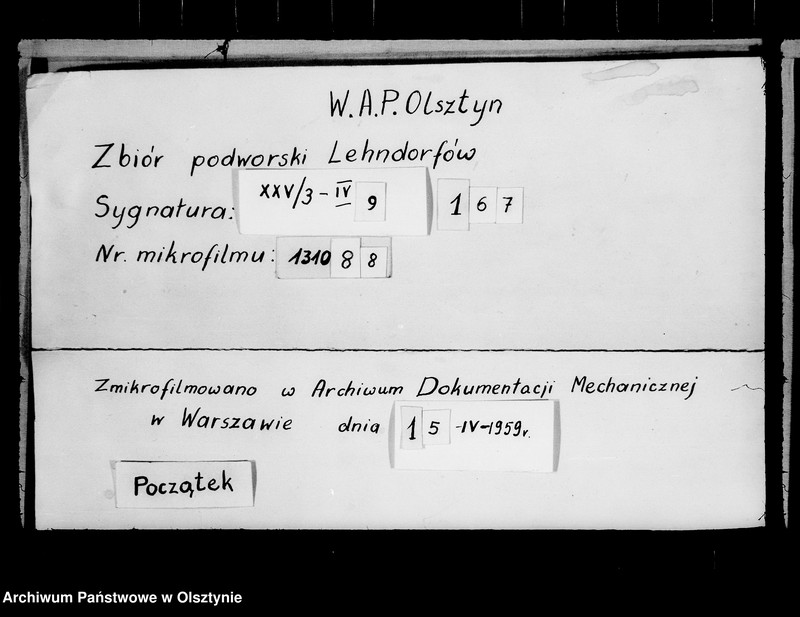 W.A.P. Olsztyn
Zbiór podworski Lehndorfów
Sygnatura: XXV/3 - IV 9 167
Nr. mikrofilmu: 131088
Zmikrofilmowano w Archiwum Dokumentacji Mechanicznej
w Warszawie dnia 15-IV-1959r.
Początek
Archiwum Państwowe w Olsztynie